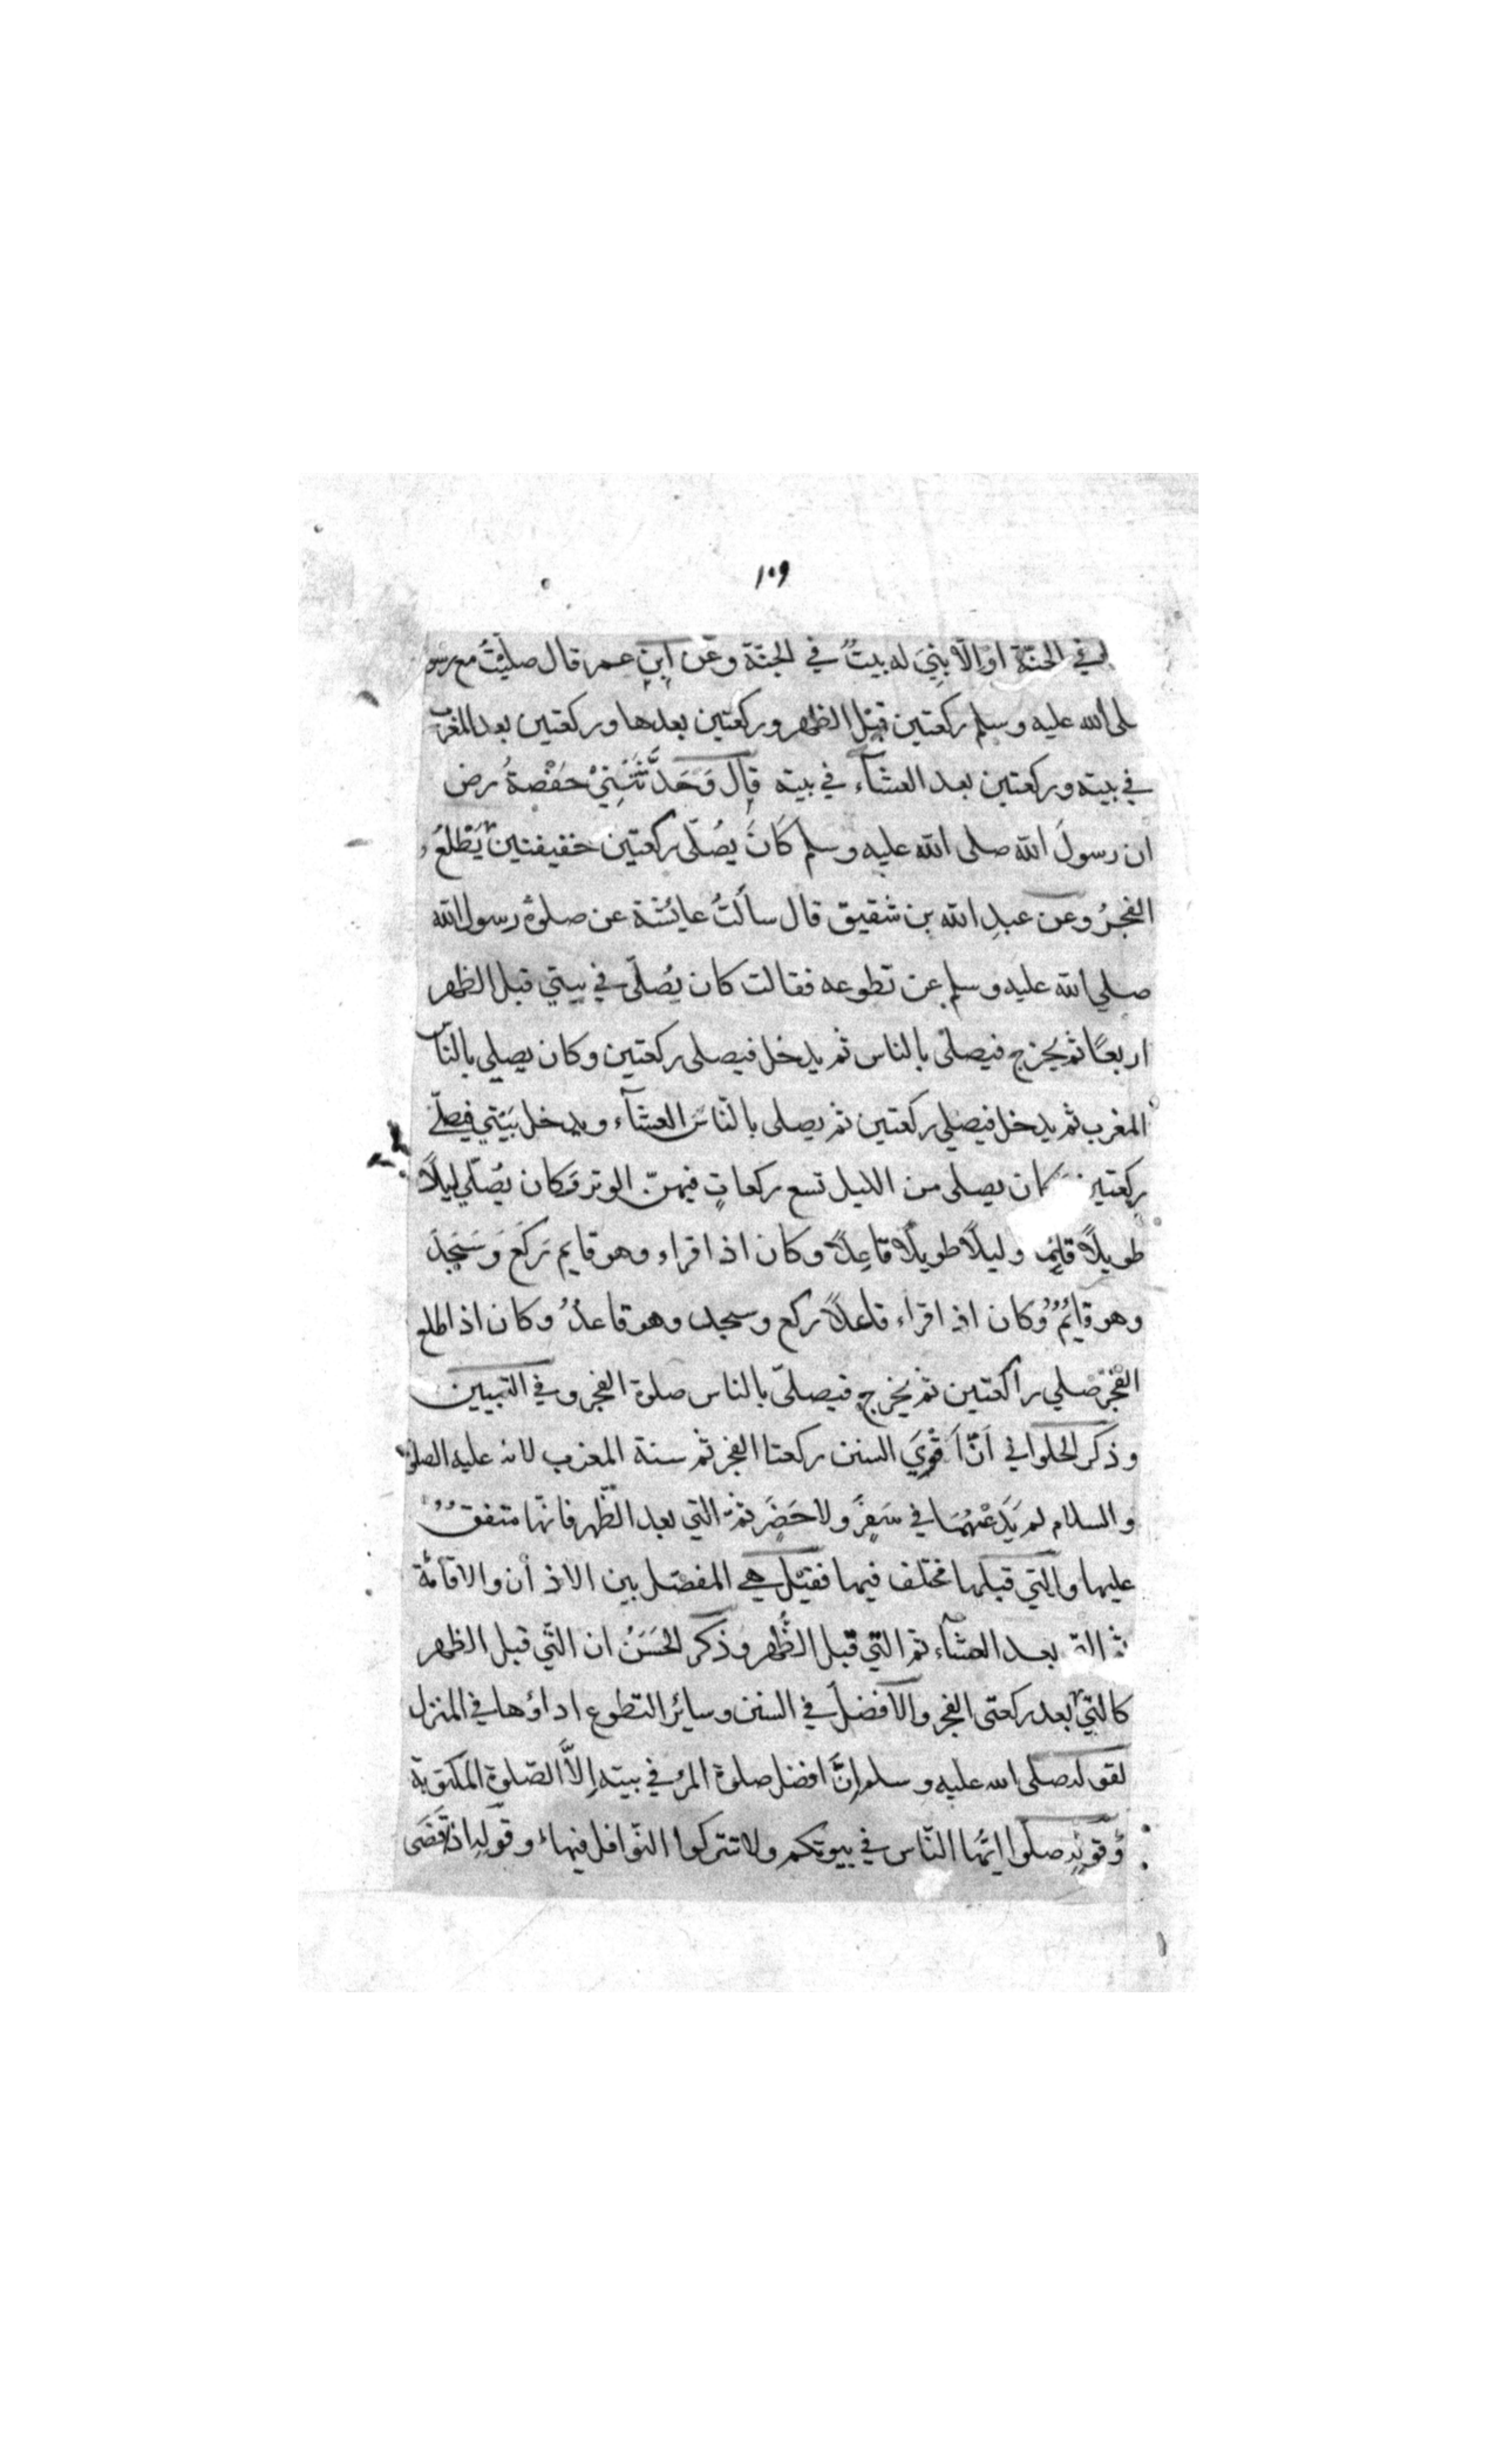 ١٠٩
في الجنّة او الّا بنِيَ له بيتٌ في الجنّة وعن ابن عمر قال صليْتُ مع رسو
لى الله عليه وسلم ركعتين قبل الظهر وركعتين بعدها وركعتين بعد المغرب
في بيته وركعتين بعد العشآء في بيته قال وَحَدَّثَتْنِيْ حَفْصَةُ رض
ان رسولَ الله صلى الله عليه وسلم كَانَ يصُلّى ركعتين خفيفتين يَطْلعُ
الفجرُ وعن عبدِ الله بن شقيق قال سالتُ عائشة عن صلوة رسول الله
صلي الله عليه وسلم عن تطوعه فقالت كان يُصلّى في بيتي قبل الظهر
اربعًا ثم يخرج فيصلّى بالناس ثم يدخل فيصلى ركعتين وكان يصلي بالنّاس
المغرب ثم يدخل فيصلي ركعتين ثم يصلى بالنّاس العشآء ويدخل بَيْتي فيصلّي
ركعتين كان يصلى من الليل تسع ركعاتٍ فيهنّ الوتر وَكان يُصّلّي ليلًا
طويلًا قايمًا وليلًا طويلًا قاعِدًا وكان اذا قراء وهو قايم رَكَعَ وَسَجَدَ
وهو قائمٌ وكان اذا قراء قاعدًا ركع وسجد وهو قاعدٌ وكان اذا طلع
الفجْرُ صلي راكعتين ثم يخرج فيصلّى بالناس صلوة الفجر وفي التبيين
وذكر الحلواني اَنَّ اَقْوَيَ السنن ركعتا الفجر ثم سنة المغرب لانه عليه الصلوة
والسلام لم يَدَعْهُمَا في سَفَرٍ ولا حَضَرٍ ثمّ التي بعد الظّهر فانّها متفقٌ
عليها والتي قبلها مختلف فيها فقيْل هي المفصْل بين الاذان والاقامة
ثم التى بعد العشآء ثم التي قبل الظُّهر وَذكر الحَسَنُ ان الّتي قبل الظهر
كالتي بعد ركعتى الفجر والافضل في السنن وسائر التطوع اداؤها في المنزل
لقوله صلى الله عليه وسلم انَّ افضل صلوة المرْ في بيته اِلاَّ الصّلوة المكتوبة
وَقوله صلّوا ايّها النّاس في بيوتكم ولا تتركوا النّوافل فيها وقوله اذا قَضَى